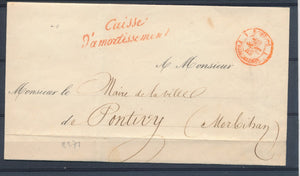 Caisse
D'amortissement
A Monsieur
Monsieur le Maire de la ville
de Pontivy (Morbihan)